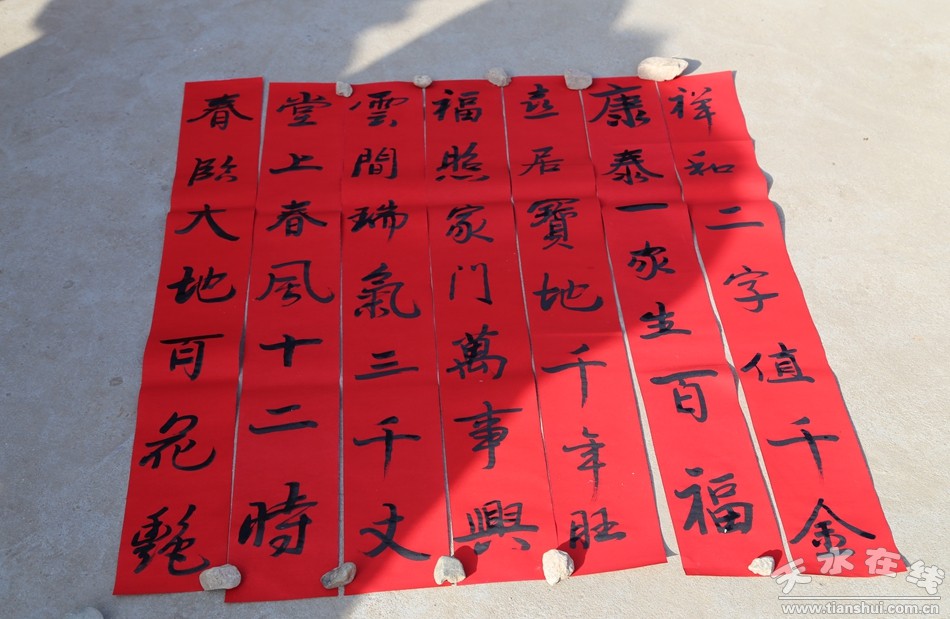 祥和二字值千金
康泰一家生百福
喜居寶地千年旺
福照家门萬事興
雲間瑞氣三千丈
堂上春風十二时
春臨大地百花艶
天水在线
www.tianshui.com.cn